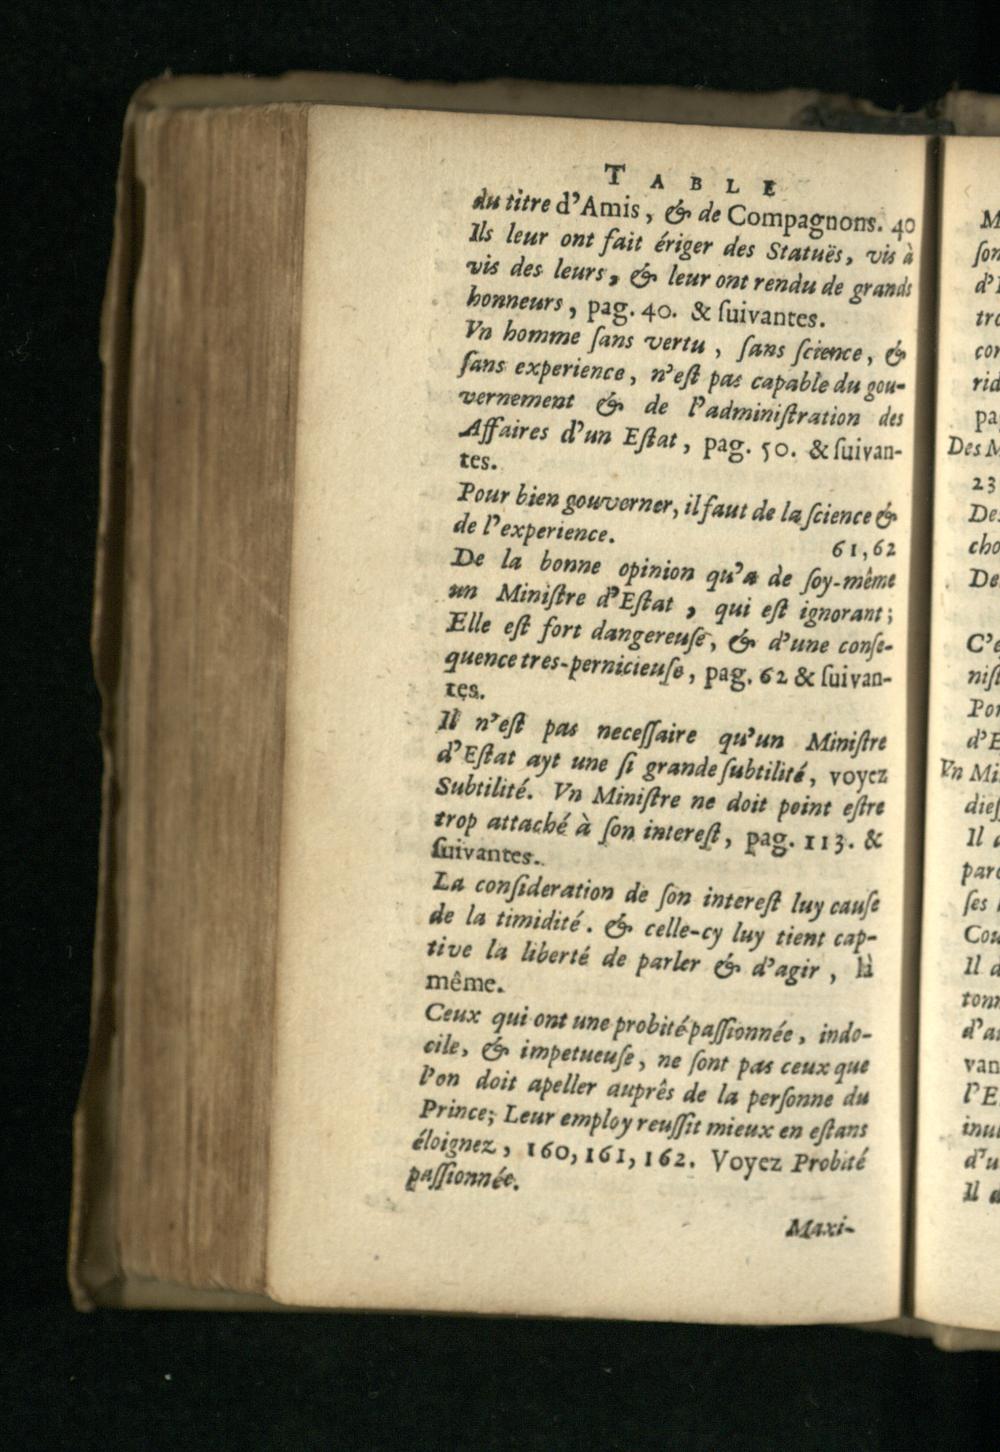 TABLE
du titre d'Amis, & de Compagnons. 40
Ils leur ont fait ériger des Statuës, vis à
vis des leurs, & leur ont rendu de grands
honneurs, pag. 40. & ſuivantes.
Vn homme ſans vertu, ſans ſcience, &
ſans experience, n'eſt pas capable du gou-
vernement & de l'adminiſtration des
Affaires d'un Eſtat, pag. 50. & ſuivan-
tes.
Pour bien gouverner, il faut de la ſcience &
de l'experience. 61,62
De la bonne opinion qu'a de ſoy-même
un Miniſtre d'Eſtat, qui eſt ignorant;
Elle eſt fort dangereuſe, & d'une conſe-
quence tres-pernicieuſe, pag. 62 & ſuivan-
tes.
Il n'eſt pas neceſſaire qu'un Miniſtre
d'Eſtat ayt une ſi grande ſubtilité, voyez
Subtilité. Vn Miniſtre ne doit point eſtre
trop attaché à ſon intereſt, pag. 113. &
ſuivantes.
La conſideration de ſon intereſt luy cauſe
de la timidité. & celle-cy luy tient cap-
tive la liberté de parler & d'agir, là
même.
Ceux qui ont une probité paſſionnée, indo-
cile, & impetueuſe, ne ſont pas ceux que
l'on doit apeller auprês de la perſonne du
Prince; Leur employ reuſſit mieux en eſtans
éloignez, 160, 161, 162. Voyez Probité
paſſionnée.
Maxi-
M
ſon
d'
tro
con
rid
pa
Des M
23
De
cho
De
C'e
niſt
Por
d'E
Vn Mi
dieſ
Il
par
ſes
Cou
Il d
tonn
d'a
van
l'E
inu
d'u
Il